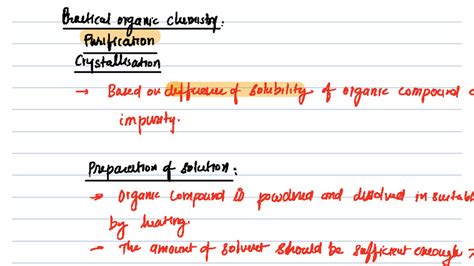 Practical organic chemistry:
Purification
Crystallisation
→ Based on difference of solubility of organic compound
impurity.
Preparation of solution:
→ Organic compound is powdered and dissolved in
by heating.
→ The amount of solvent should be sufficient enough